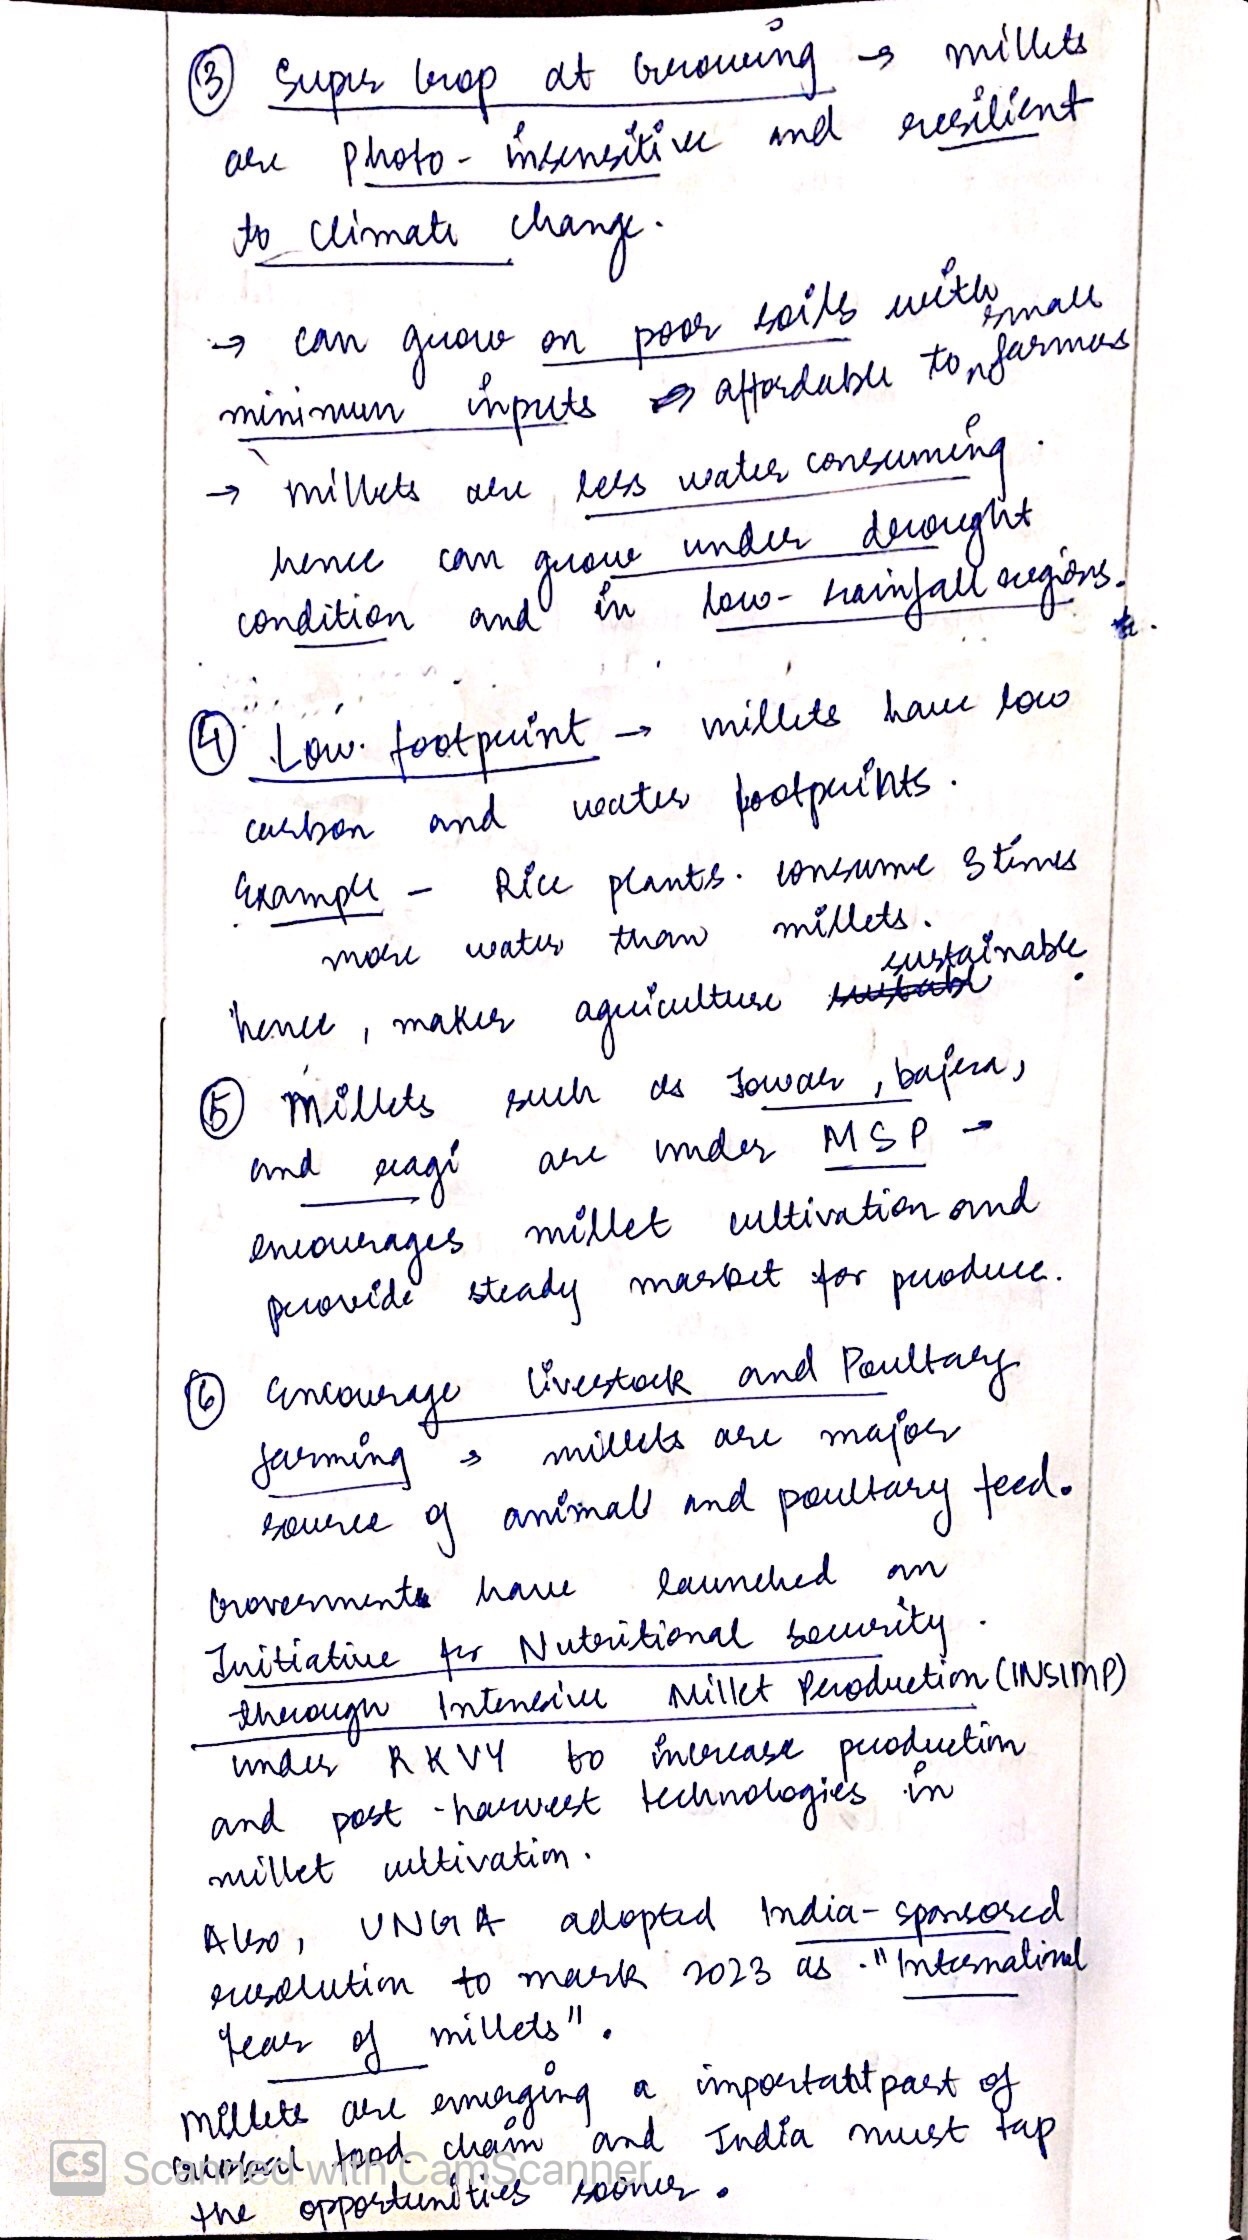 ③ Super Crop at Growing → millets
are photo-insensitive and resilient
to climate change.
→ can grow on poor soils with
minimum inputs → affordable to small farmers
→ millets are less water consuming.
hence can grow under drought
condition and in low-rainfall regions.
④ Low footprint → millets have low
carbon and water footprints.
Example - Rice plants consume 3 times
more water than millets.
hence, makes agriculture sustainable.
⑤ Millets such as Jowar, bajra,
and ragi are under MSP →
encourages millet cultivation and
provide steady market for produce.
⑥ Encourage livestock and Poultary
farming → millets are major
source of animal and poultary feed.
Government have launched an
Initiative for Nutritional Security
through Intensive Millet Production (INSIMP)
under RKVY to increase production
and post-harvest technologies in
millet cultivation.
Also, UNGA adopted India-sponsored
resolution to mark 2023 as "International
Year of millets".
Millets are emerging a important part of
global food chain and India must tap
the opportunities sooner.
CS Scanned with CamScanner